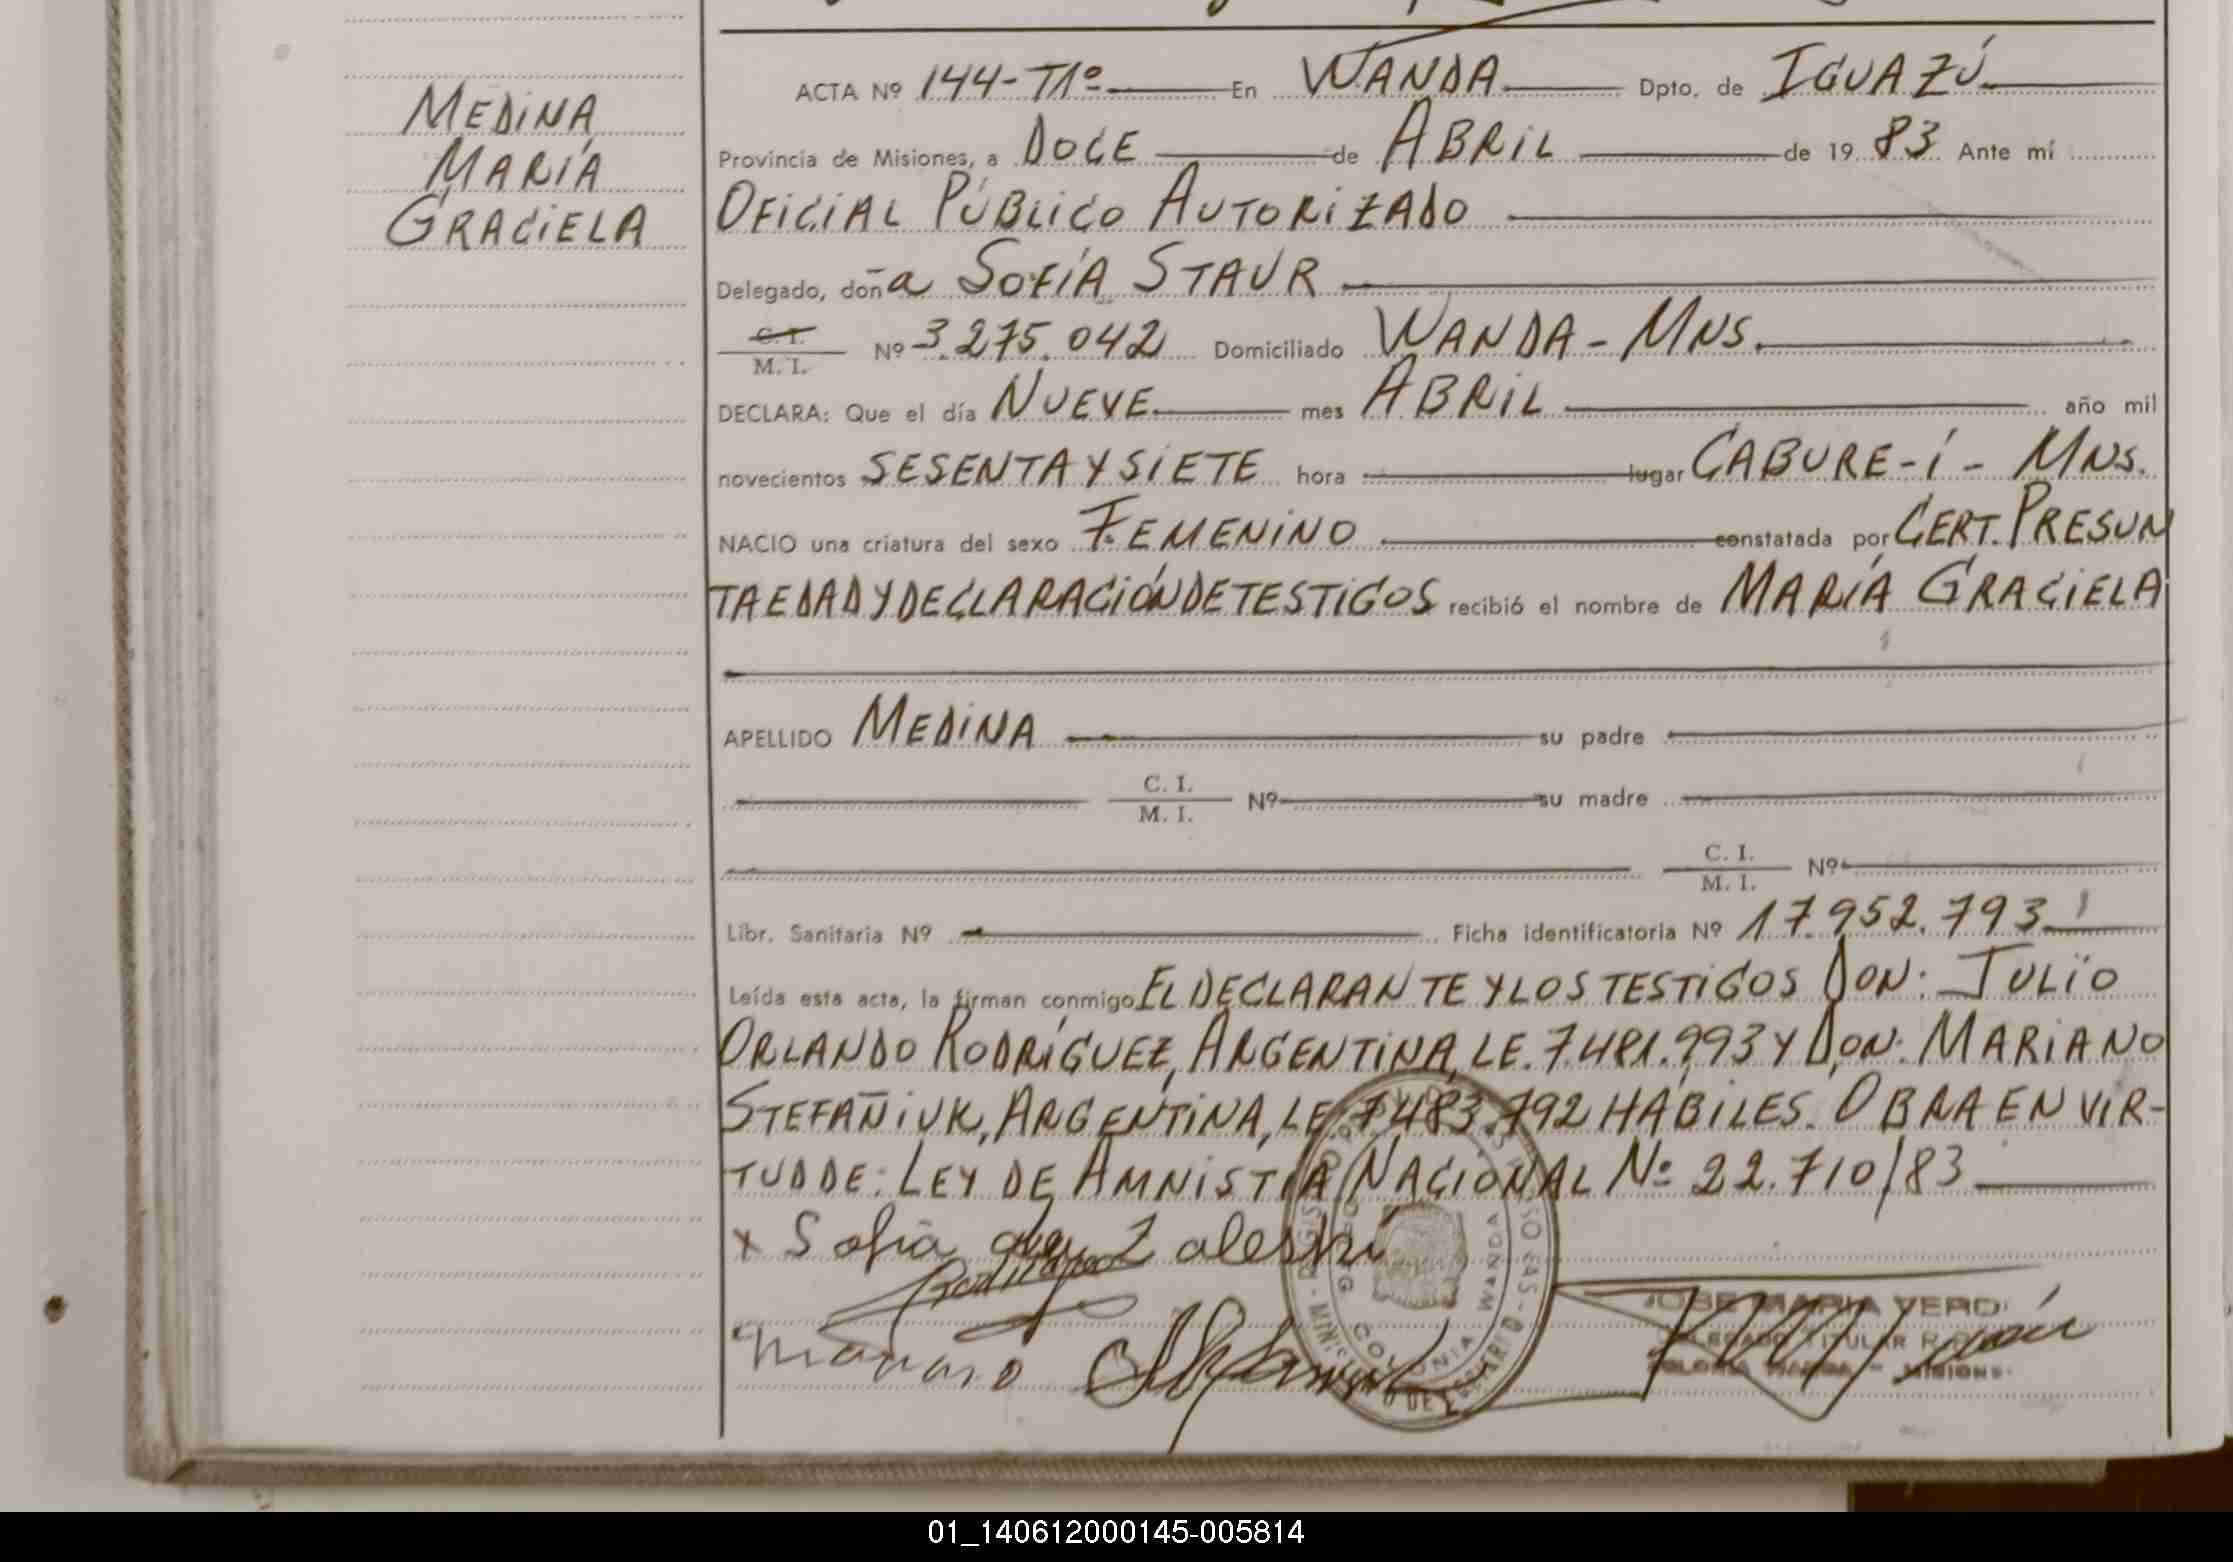 MEDINA
MARÍA
GRACIELA
ACTA Nº 144-T1º En WANDA Dpto. de IGUAZÚ
Provincia de Misiones, a DOCE de ABRIL de 19 83 Ante mí
OFICIAL PÚBLICO AUTORIZADO
Delegado, doña SOFÍA STAUR
C. I.
M. I. Nº 3.275.042 Domiciliado WANDA - MNS.
DECLARA: Que el día NUEVE mes ABRIL año mil
novecientos SESENTA Y SIETE hora lugar CABURE-Í - MNS.
NACIO una criatura del sexo FEMENINO constatada por CERT. PRESUN
TA EDAD Y DECLARACIÓN DE TESTIGOS recibió el nombre de MARÍA GRACIELA
APELLIDO MEDINA su padre
C. I.
M. I. Nº su madre
C. I.
M. I. Nº
Libr. Sanitaria Nº Ficha identificatoria Nº 17.952.793
Leída esta acta, la firman conmigo EL DECLARANTE Y LOS TESTIGOS DON: JULIO
ORLANDO RODRÍGUEZ, ARGENTINA, LE. 7.481.993 Y DON: MARIANO
STEFAÑIUK, ARGENTINA, LE. 7.483.792 HÁBILES. OBRA EN VIR-
TUD DE: LEY DE AMNISTÍA NACIONAL Nº 22.710/83
x Sofia
JOSE MARIA VERO
DELEGADO TITULAR R.P.
COLONIA WANDA - MISIONES
COLONIA WANDA
Mariano
01_140612000145-005814